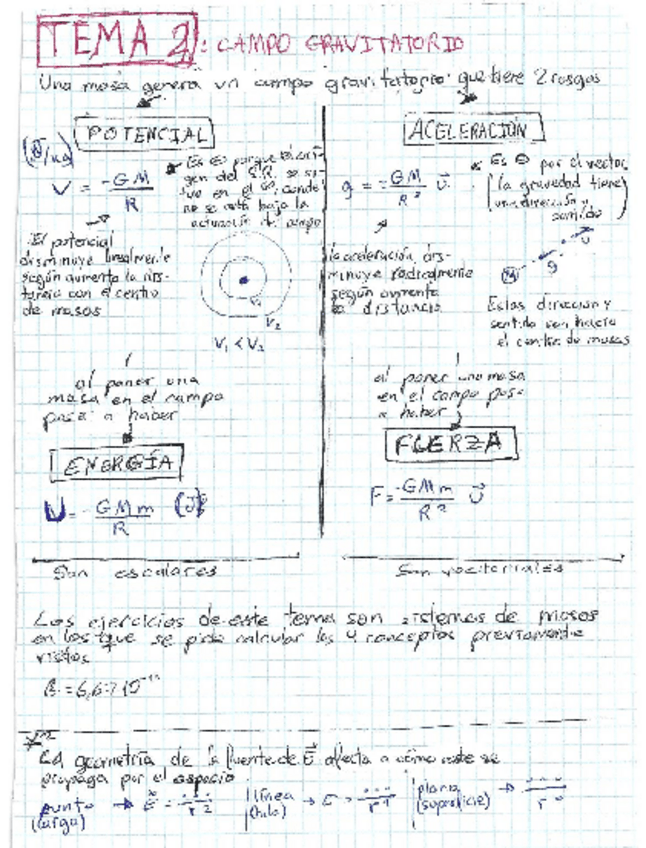 TEMA 2: CAMPO GRAVITATORIO
Una masa genera un campo gravitatorio que tiene 2 rasgos
POTENCIAL
V = -GM/R
Es ⊖ porque el ori-
gen del S.R. se si-
tua en el ∞, donde
no se está bajo la
actuación del campo
El potencial
disminuye linealmente
según aumenta la dis-
tancia con el centro
de masas
V₁
V₂
V₁ < V₂
al poner una
masa en el campo
pasa a haber
ENERGÍA
U = -GMm/R (J)
Son escalares
ACELERACIÓN
g = -GM/R² û
Es ⊖ por el vector
(la gravedad tiene
una dirección y
sentido)
la aceleración dis-
minuye radicalmente
según aumenta
la distancia
M
g
u
Estas dirección y
sentido van hacia
el centro de masas
al poner una masa
en el campo pasa
a haber
FUERZA
F = -GMm/R² û
Son vectoriales
Los ejercicios de este tema son sistemas de masas
en los que se pide calcular los 4 conceptos previamente
vistos
G = 6,67·10⁻¹¹
La geometría de la fuente de E⃗ afecta a cómo este se
propaga por el espacio
punto → E⃗ = .../r² | línea → E = .../r¹ | plano → .../r⁰
(carga) (hilo) (superficie)